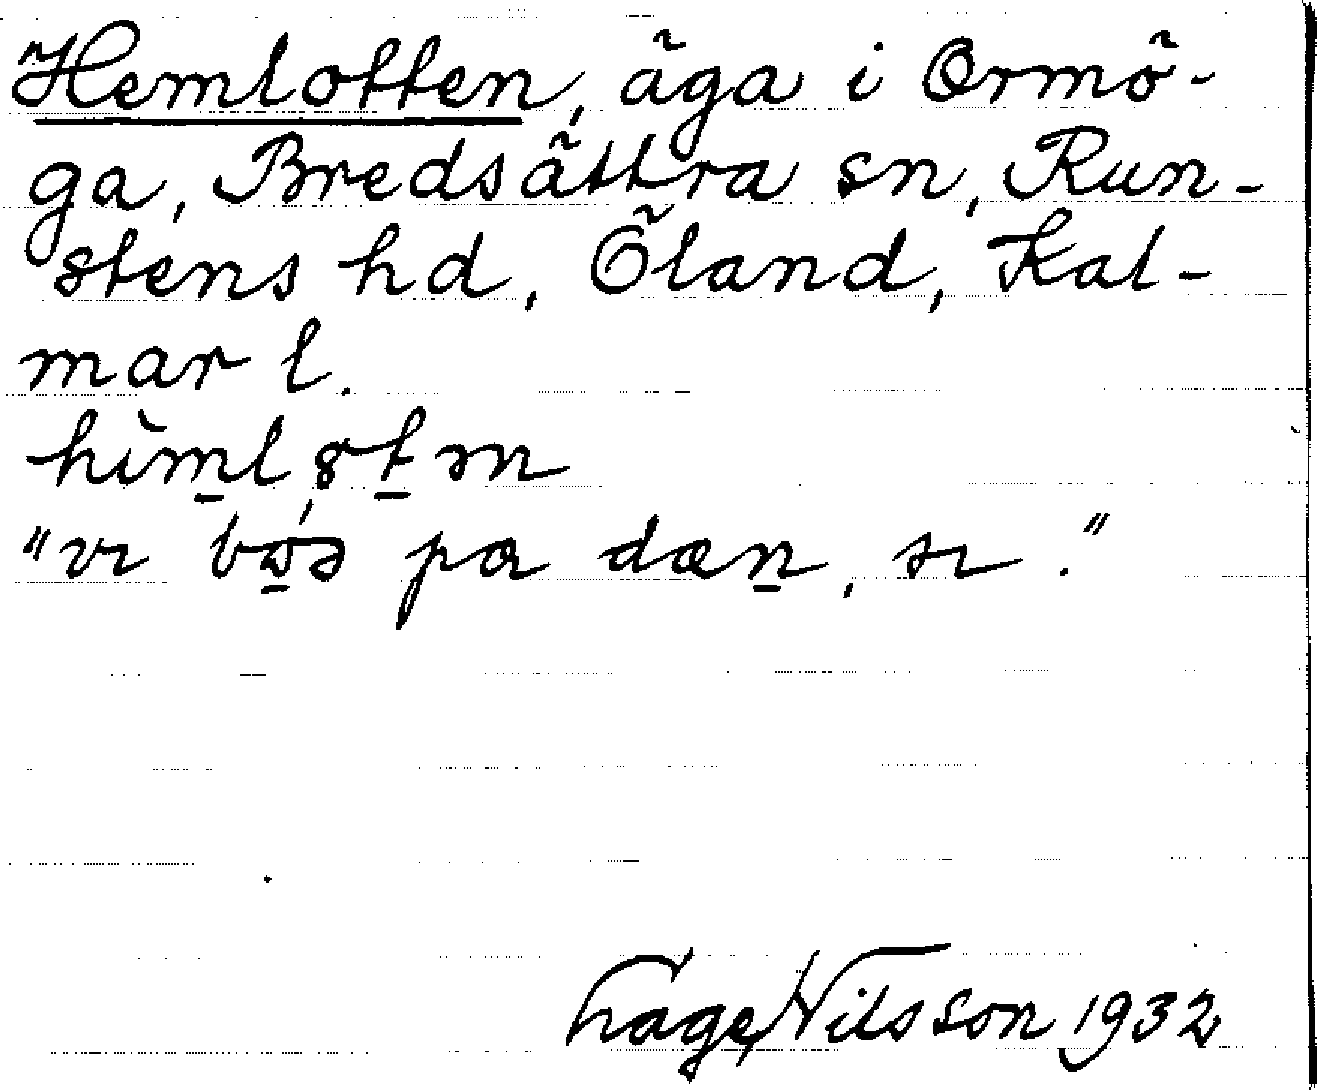 Hemlotten, äga i Ormö-
ga, Bredsättra sn, Run-
stens hd, Öland, Kal-
mar l.
"vi på dæn, si."
Tage Nilsson 1932